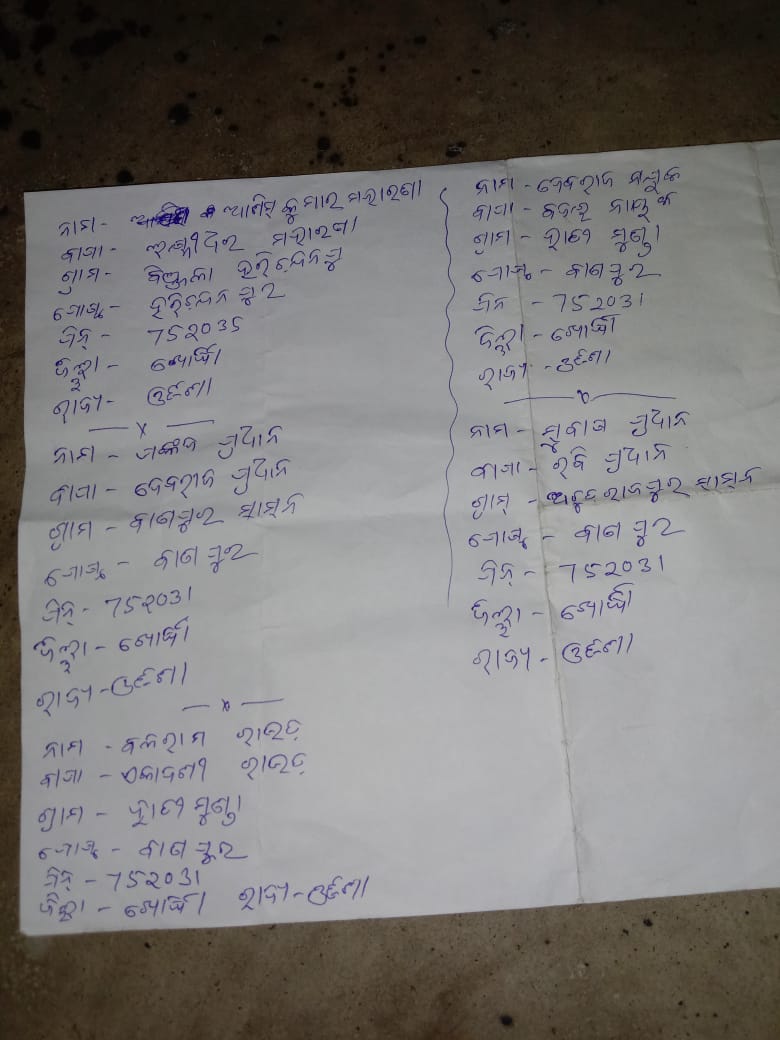 ନାମ - ଆଶିଷ କୁମାର ମହାରଣା
ବାପା - ଲକ୍ଷ୍ମୀଧର ମହାରଣା
ଗ୍ରାମ - ହରିଚନ୍ଦନପୁ
ପୋଷ୍ଟ - ହରିଚନ୍ଦନ ପୁର
ପିନ୍ - 752035
ଜିଲ୍ଲା - ଖୋର୍ଦ୍ଧା
ରାଜ୍ୟ - ଓଡ଼ିଶା
x
ନାମ - ପଙ୍କଜ ପ୍ରଧାନ
ବାପା - ଦେବରାଜ ପ୍ରଧାନ
ଗ୍ରାମ - ବାଣପୁର ଶାସନ
ପୋଷ୍ଟ - ବାଣପୁର
ପିନ୍ - 752031
ଜିଲ୍ଲା - ଖୋର୍ଦ୍ଧା
ରାଜ୍ୟ - ଓଡ଼ିଶା
x
ନାମ - ବଳରାମ ରାଉତ୍
ବାପା - ଏକାଦଶୀ ରାଉତ୍
ଗ୍ରାମ - ହାତୀ ମୁଣ୍ଡା
ପୋଷ୍ଟ - ବାଣପୁର
ପିନ୍ - 752031
ଜିଲ୍ଲା - ଖୋର୍ଦ୍ଧା ରାଜ୍ୟ - ଓଡ଼ିଶା
ନାମ - ଦେବରାଜ
ବାପା -
ଗ୍ରାମ - ହାତୀ ମୁଣ୍ଡା
ପୋଷ୍ଟ - ବାଣପୁର
ପିନ - 752031
ଜିଲ୍ଲା - ଖୋର୍ଦ୍ଧା
ରାଜ୍ୟ - ଓଡ଼ିଶା
x
ନାମ - ସୁବାଷ ପ୍ରଧାନ
ବାପା - ରବି ପ୍ରଧାନ
ଗ୍ରାମ୍ - ଶାସନ
ପୋଷ୍ଟ - ବାଣପୁର
ପିନ୍ - 752031
ଜିଲ୍ଲା - ଖୋର୍ଦ୍ଧା
ରାଜ୍ୟ - ଓଡ଼ିଶା